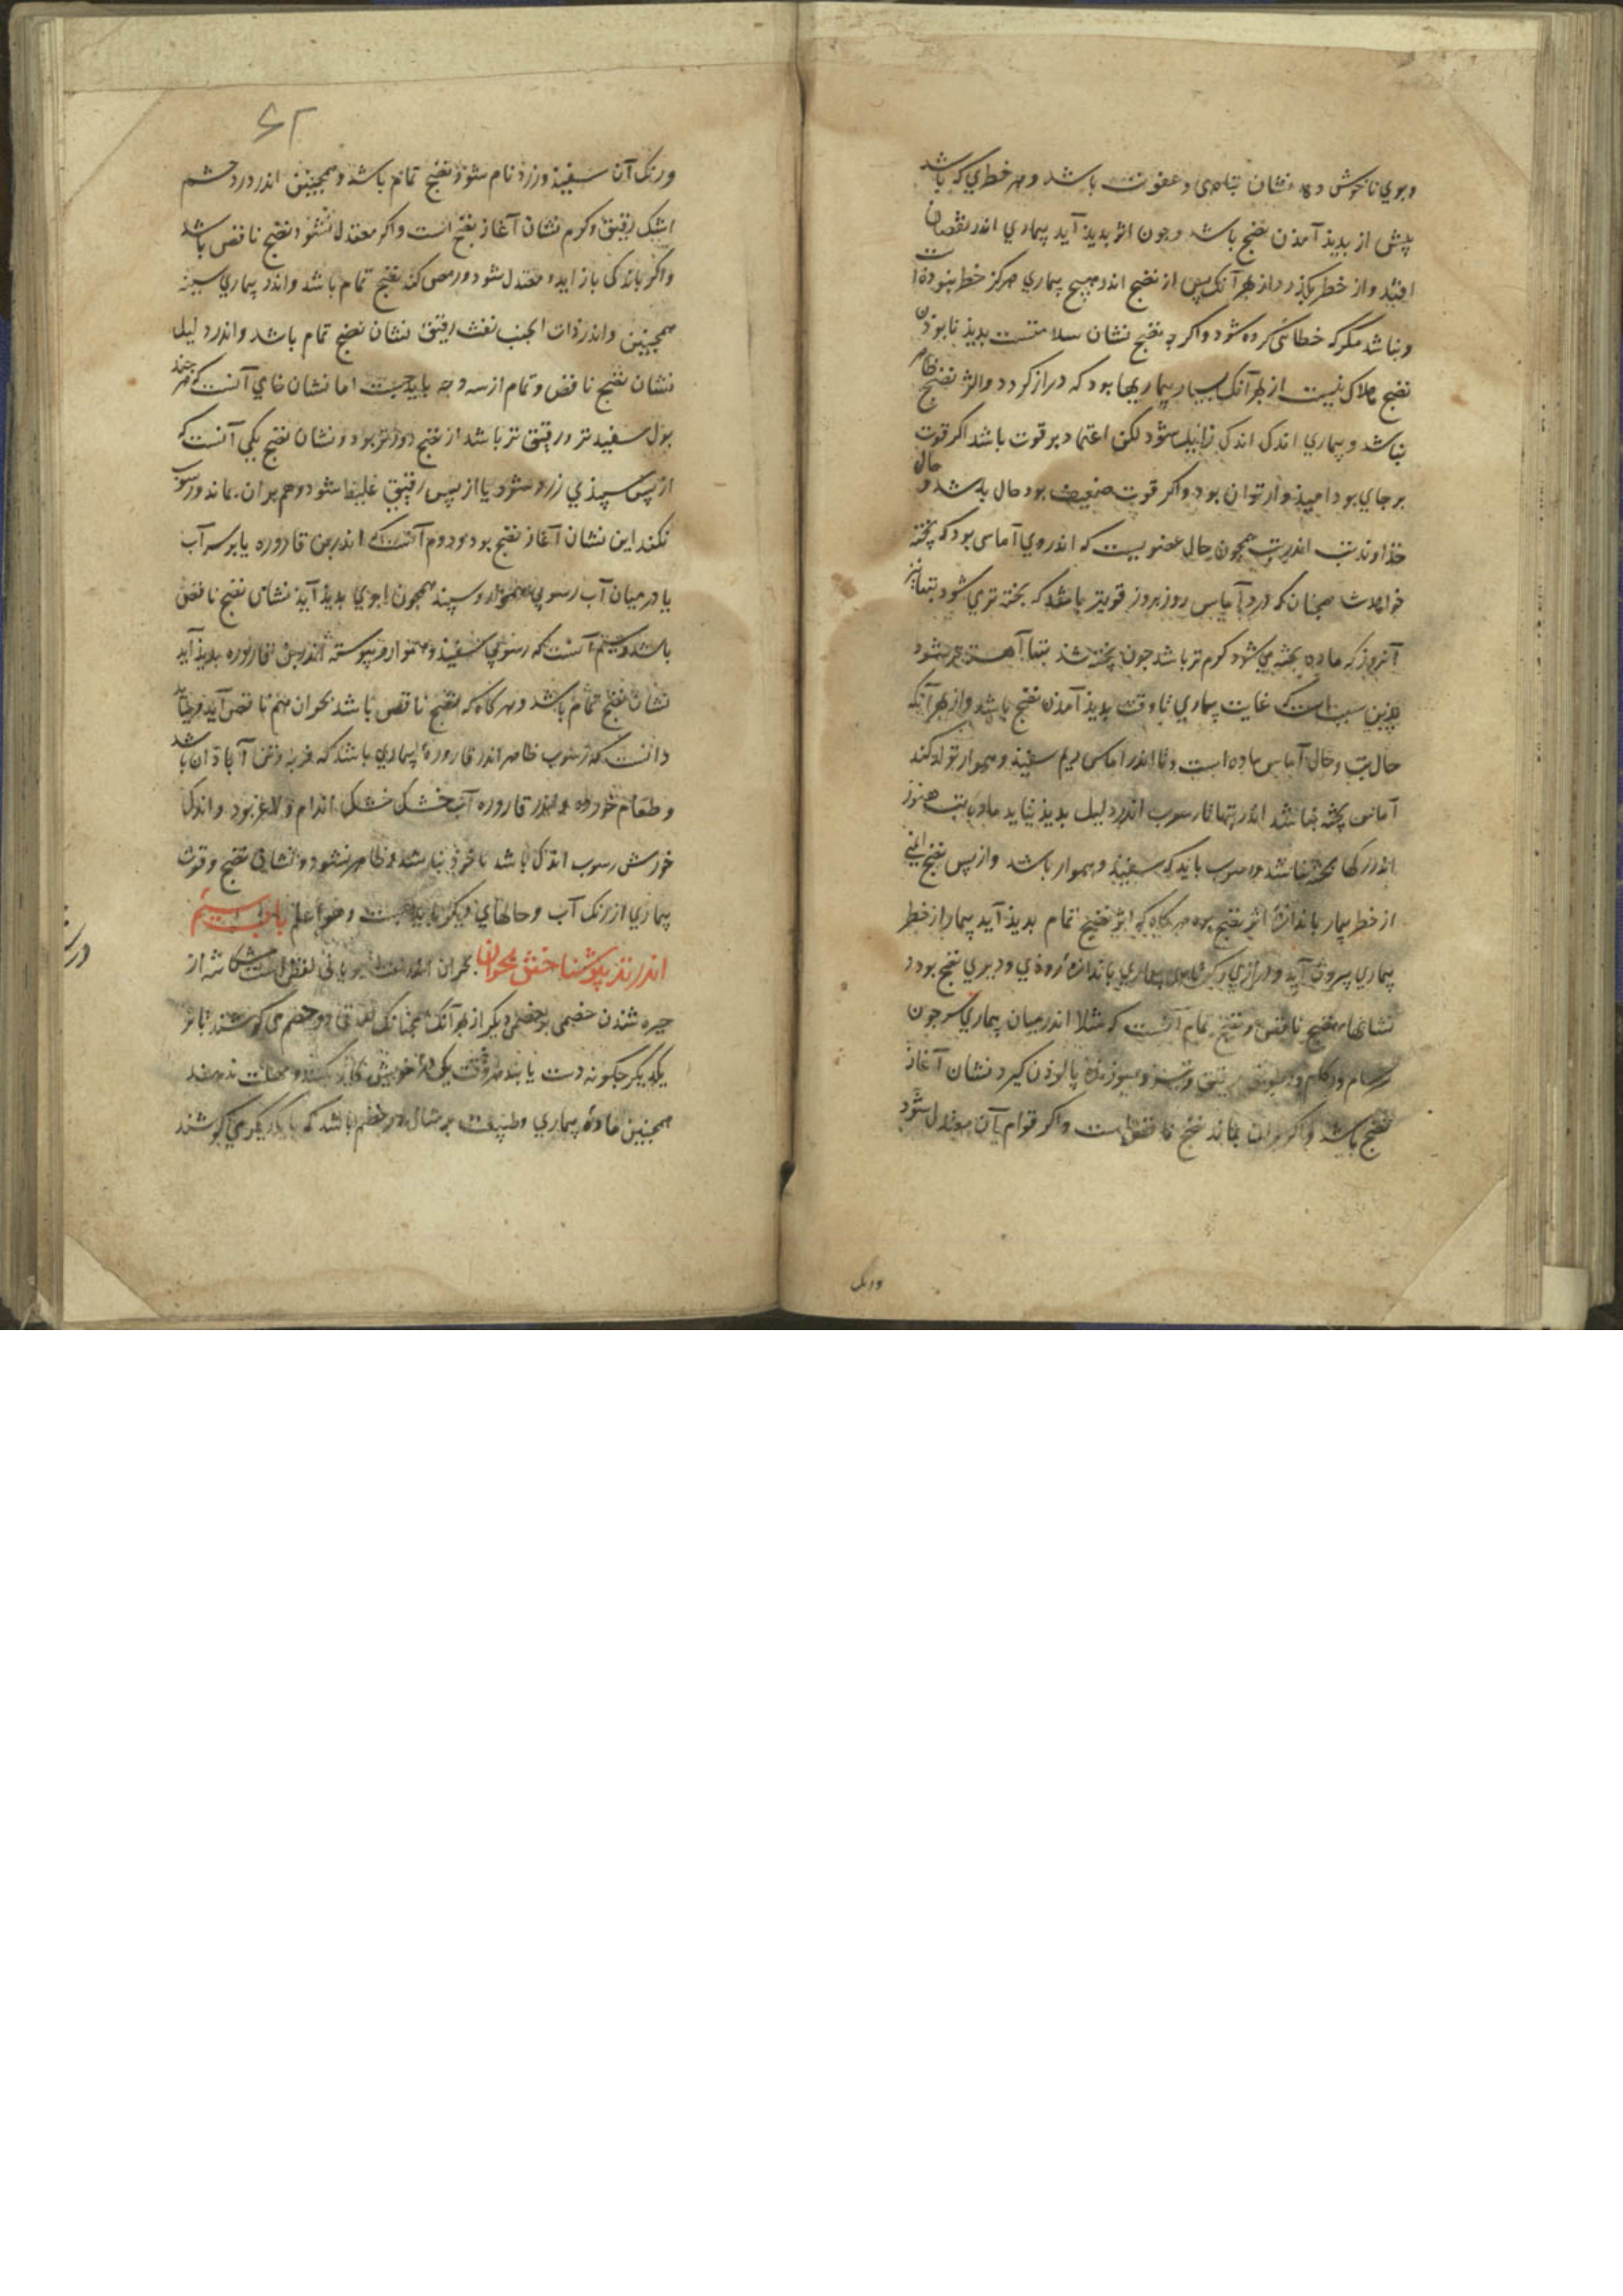 وبوي ناخوش دهد نشان تباهی و عفونت باشد و هر خطري که باشد
پیش از بدیذ آمذن نضج باشد وجون اثر بدیذ آید بیماري اندر نقصان
افتد و از خطر بکذرد از بهر آنک پس از نضج اندر هیچ بیماري هرکز خطر نبوده است
ونباشد مکر که خطائی کرده شود واکر چه نضج نشان سلامتست بدیذ نابوذن
نضج هلاک نیست از بهر آنک بسیار بیماریها بود که دراز کردد واثر نضج ظاهر
نباشد و بیماري اندک اندک زایل شود لکن اعتماد بر قوت باشد اکر قوت
بر جاي بود امیذوارتوان بود واکر قوت ضعیف بود حال بد باشد و حال
خذاوند تب اندر تب همچون حال عضویست که اندروي آماسی بود که پخته
خواهد شد همچنان که درد آماس روز بروز قویتر باشد که پخته تري شود تبها نیز
آنروز که ماده پخته مي شود کرم تر باشد جون پخته شد تبها آهسته تر شود
بدین سبب است که غایت بیماري تا وقت بدیذ آمذن نضج باشد و از بهر آنکه
حال تب وحال آماس ماده است و تا اندر آماس ریم سفیذ و هموار تولد نکند
آماس پخته نباشد اندر تبها تا رسوب اندر دلیل بدیذ نیاید ماده تب هنوز
اندر رکها پخته نباشد و رسوب باید که سفیذ و هموار باشد و از پس نضج ایمني
از خطر بیمار باندازه اثر نضج بود هرکاه که اثر نضج تمام بدیذ آید بیمار از خطر
بیماري بیرون آید و درازي و کوتاهی بیماري باندازه زوذي و دیري نضج بود و
نشانهاء نضج ناقص و نضج تمام آنست که مثلا اندر میان بیماري سر جون
سرسام و زکام رطوبتی رقیق و تیز و سوزنده پالوذن کیرد نشان آغاز
نضج باشد واکر بران بماند نضج ناقص است واکر قوام آن معتدل شود
ورنک
۶۲
ورنک آن سفیذ وزرد فام شود نضج تمام باشد و همچنین اندر درد چشم
اشک رقیق وکرم نشان آغاز نضج است واکر معتدل نشود نضج ناقص باشد
واکر باندکی باز اید و معتدل شود و رمص کند نضج تمام باشد و اندر بیماري سینه
همچنین واندر ذات الجنب نفث رقیق نشان نضج تمام باشد واندر دلیل
نشان نضج ناقص و تمام از سه وجه باید جست اما نشان خامي آنست که هر چند
بول سفیدتر و رقیق تر باشد از نضج دورتر بود و نشان نضج یکي آنست که
از پس سپیذي زرد شود یا از پس رقیقي غلیظ شود و هم بران بماند و رسوب
نکند این نشان آغاز نضج بود و دوم آنست که اندر بن قاروره یا بر سر آب
یا در میان آب رسوبي هموار و سپید همچون ابري بدیذ آید نشان نضج ناقص
باشد و سیم آنست که رسوبي سفیذ و هموار و پیوسته اندر بن قاروره بدیذ آید
نشان نضج تمام باشد و هرکاه که نضج ناقص باشد بحران هم ناقص آید و بباید
دانست که رسوب ظاهر اندر قاروره بیماري باشد که فربه و تن آبادان باشد
و طعام خورده و اندر قاروره آب خشک اندام و لاغر بود و اندک
خورش رسوب اندک باشد یا خوذ نباشد و ظاهر نشود و نشان نضج و قوت
بیماري از رنک آب و حالهاي دیکر باید جست و هو اعلم باب سیم
اندر تدبیر شناختن بحران بحران اندر لغت یوناني لفظي است شکافته از
چیره شدن خصمی بر خصمی دیکر از بهر آنک همچنانک دو خصم می کوشند تا بر
یکدیکر جکونه دست یابند هر وقت یکی خویش و مهلت ندهند
همچنین ماده بیماري وطبیعت بر مثال دو خصم باشد که با یکدیکر مي کوشند